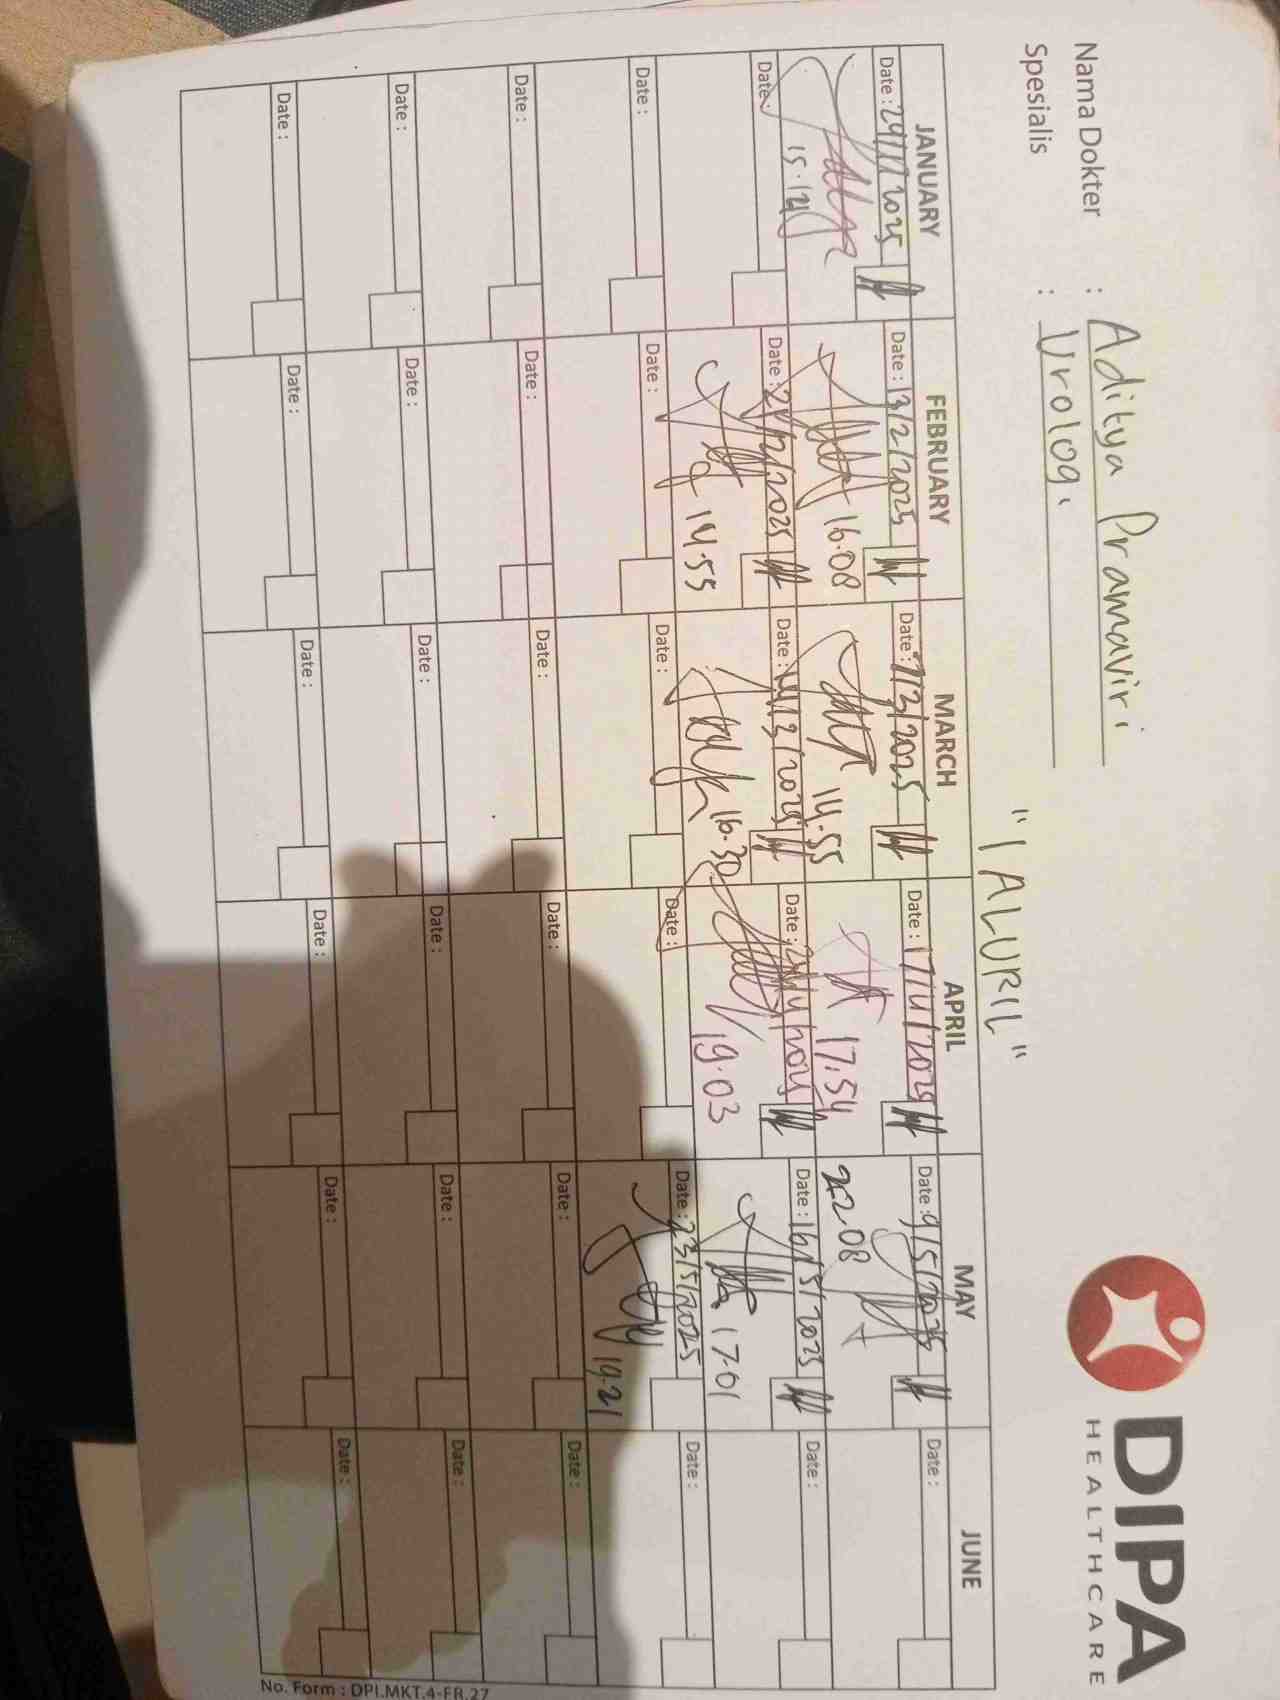 Nama Dokter : Aditya Pramaviri
Spesialis : Urologi
DIPA
HEALTHCARE
"IALURIL"
JANUARY FEBRUARY MARCH APRIL MAY JUNE
Date : Date : 13/2/2025 Date : 7/3/2025 Date : 17/4/2025 Date : 9/5/2025 Date :
15.12 16.08 14.55 17.54 22 08
Date : Date : Date : Date : Date : 16/5/2025 Date :
14.55 16.30 19.03 17.01
Date : Date : Date : Date : Date : 23/5/2025 Date :
19.21
Date : Date : Date : Date : Date : Date :
Date : Date : Date : Date : Date : Date :
Date : Date : Date : Date : Date : Date :
No. Form : DPI.MKT.4-FR.27